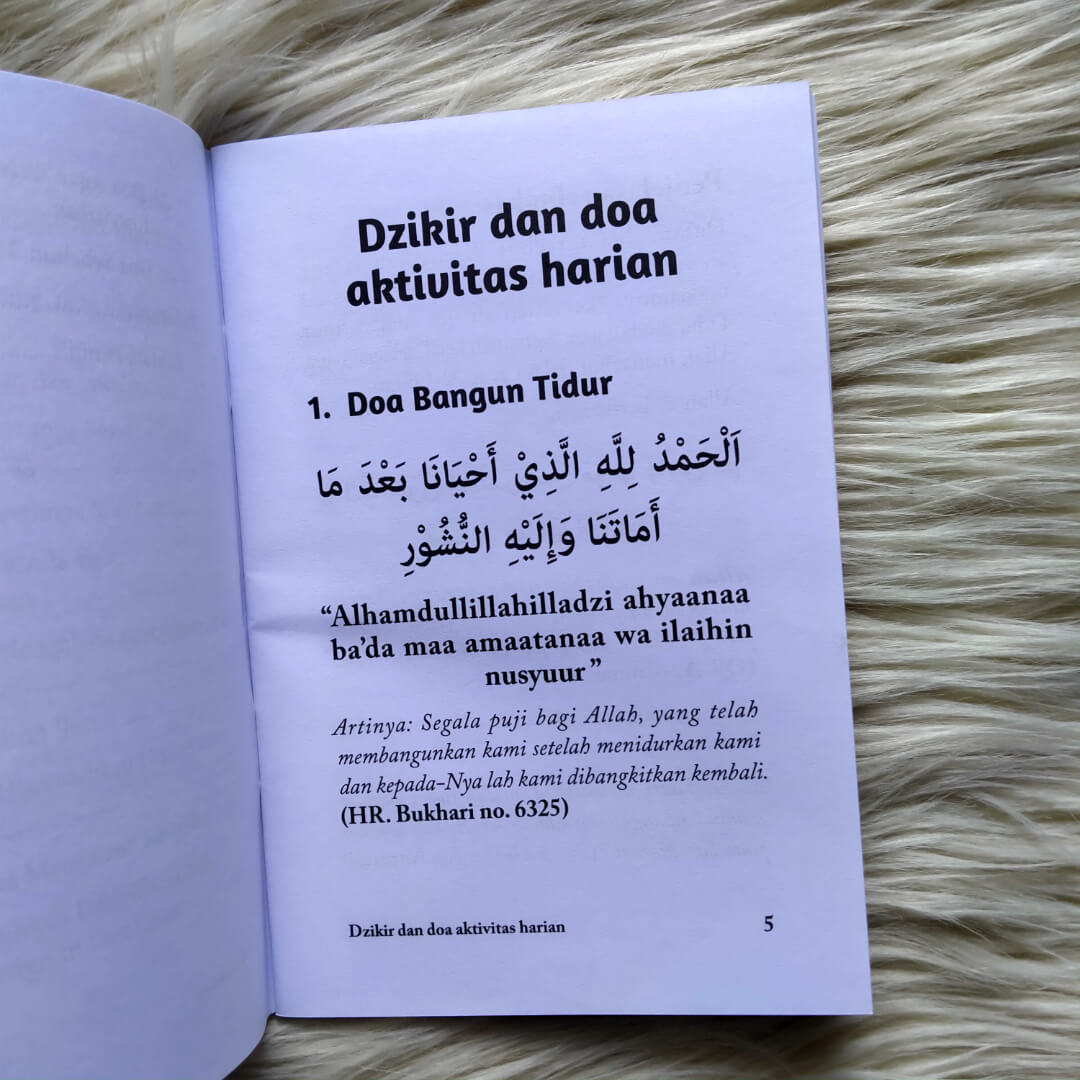 Dzikir dan doa
aktivitas harian
1. Doa Bangun Tidur
اَلْحَمْدُ لِلَّهِ الَّذِيْ أَحْيَانَا بَعْدَ مَا
أَمَاتَنَا وَإِلَيْهِ النُّشُوْرِ
“Alhamdullillahilladzi ahyaanaa
ba’da maa amaatanaa wa ilaihin
nusyuur”
Artinya: Segala puji bagi Allah, yang telah
membangunkan kami setelah menidurkan kami
dan kepada-Nya lah kami dibangkitkan kembali.
(HR. Bukhari no. 6325)
Dzikir dan doa aktivitas harian 5